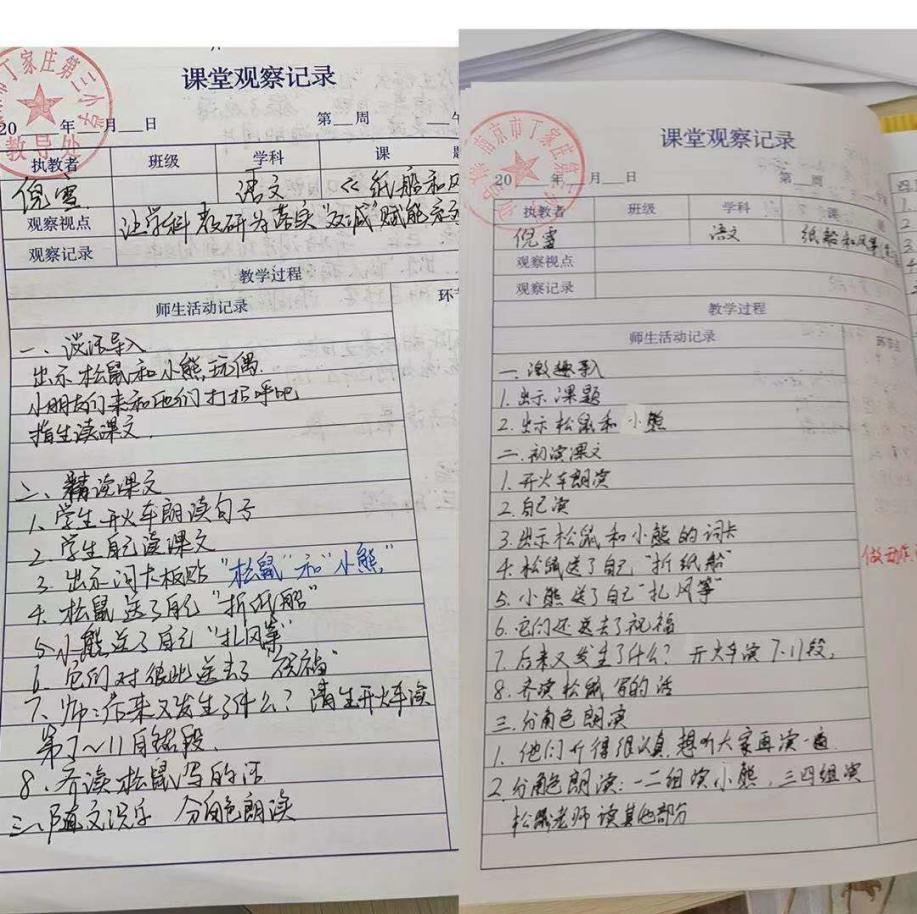 课堂观察记录
丁家庄第三小学
教导处
20 年 月 日 第 周
执教者 班级 学科 课 题
倪雪 语文 《纸船和风
观察视点 让学科教研为落实"双减"赋能
观察记录
教学过程
师生活动记录 环节
一、谈话导入
出示松鼠和小熊玩偶.
小朋友们来和他们打招呼吧
指生读课文.
二、精读课文
1、学生开火车朗读句子
2、学生自己读课文
3、出示词卡板贴"松鼠"和"小熊"
4、松鼠送了自己"折纸船"
5、小熊送了自己"扎风筝"
6、它们对彼此送去了"祝福"
7、师:后来又发生了什么?请生开火车读
第7~11自然段.
8、齐读松鼠写的话
三、随文识字 分角色朗读
课堂观察记录
南京市丁家庄第
20 年 月 日 第 周
执教者 班级 学科 课
倪雪 语文 纸船和风筝
观察视点
观察记录
教学过程
师生活动记录
一、激趣导入
1.出示课题
2.出示松鼠和小熊
二、初读课文
1.开火车朗读
2.自己读
3.出示松鼠和小熊的词卡
4.松鼠送了自己"折纸船"
5.小熊送了自己"扎风筝"
6.它们还送去了祝福
7.后来又发生了什么?开火车读7-11段.
8.齐读松鼠写的话
三、分角色朗读
1.他们听得很认真,想听大家再读一遍
2.分角色朗读:一二组读小熊,三四组读
松鼠老师读其他部分
做动作